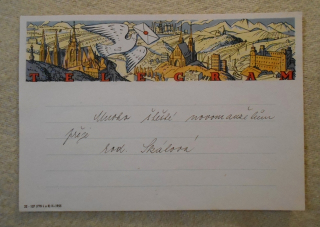 TELEGRAM
Mnoho štěstí novomanželům
přeje
rod Skálová